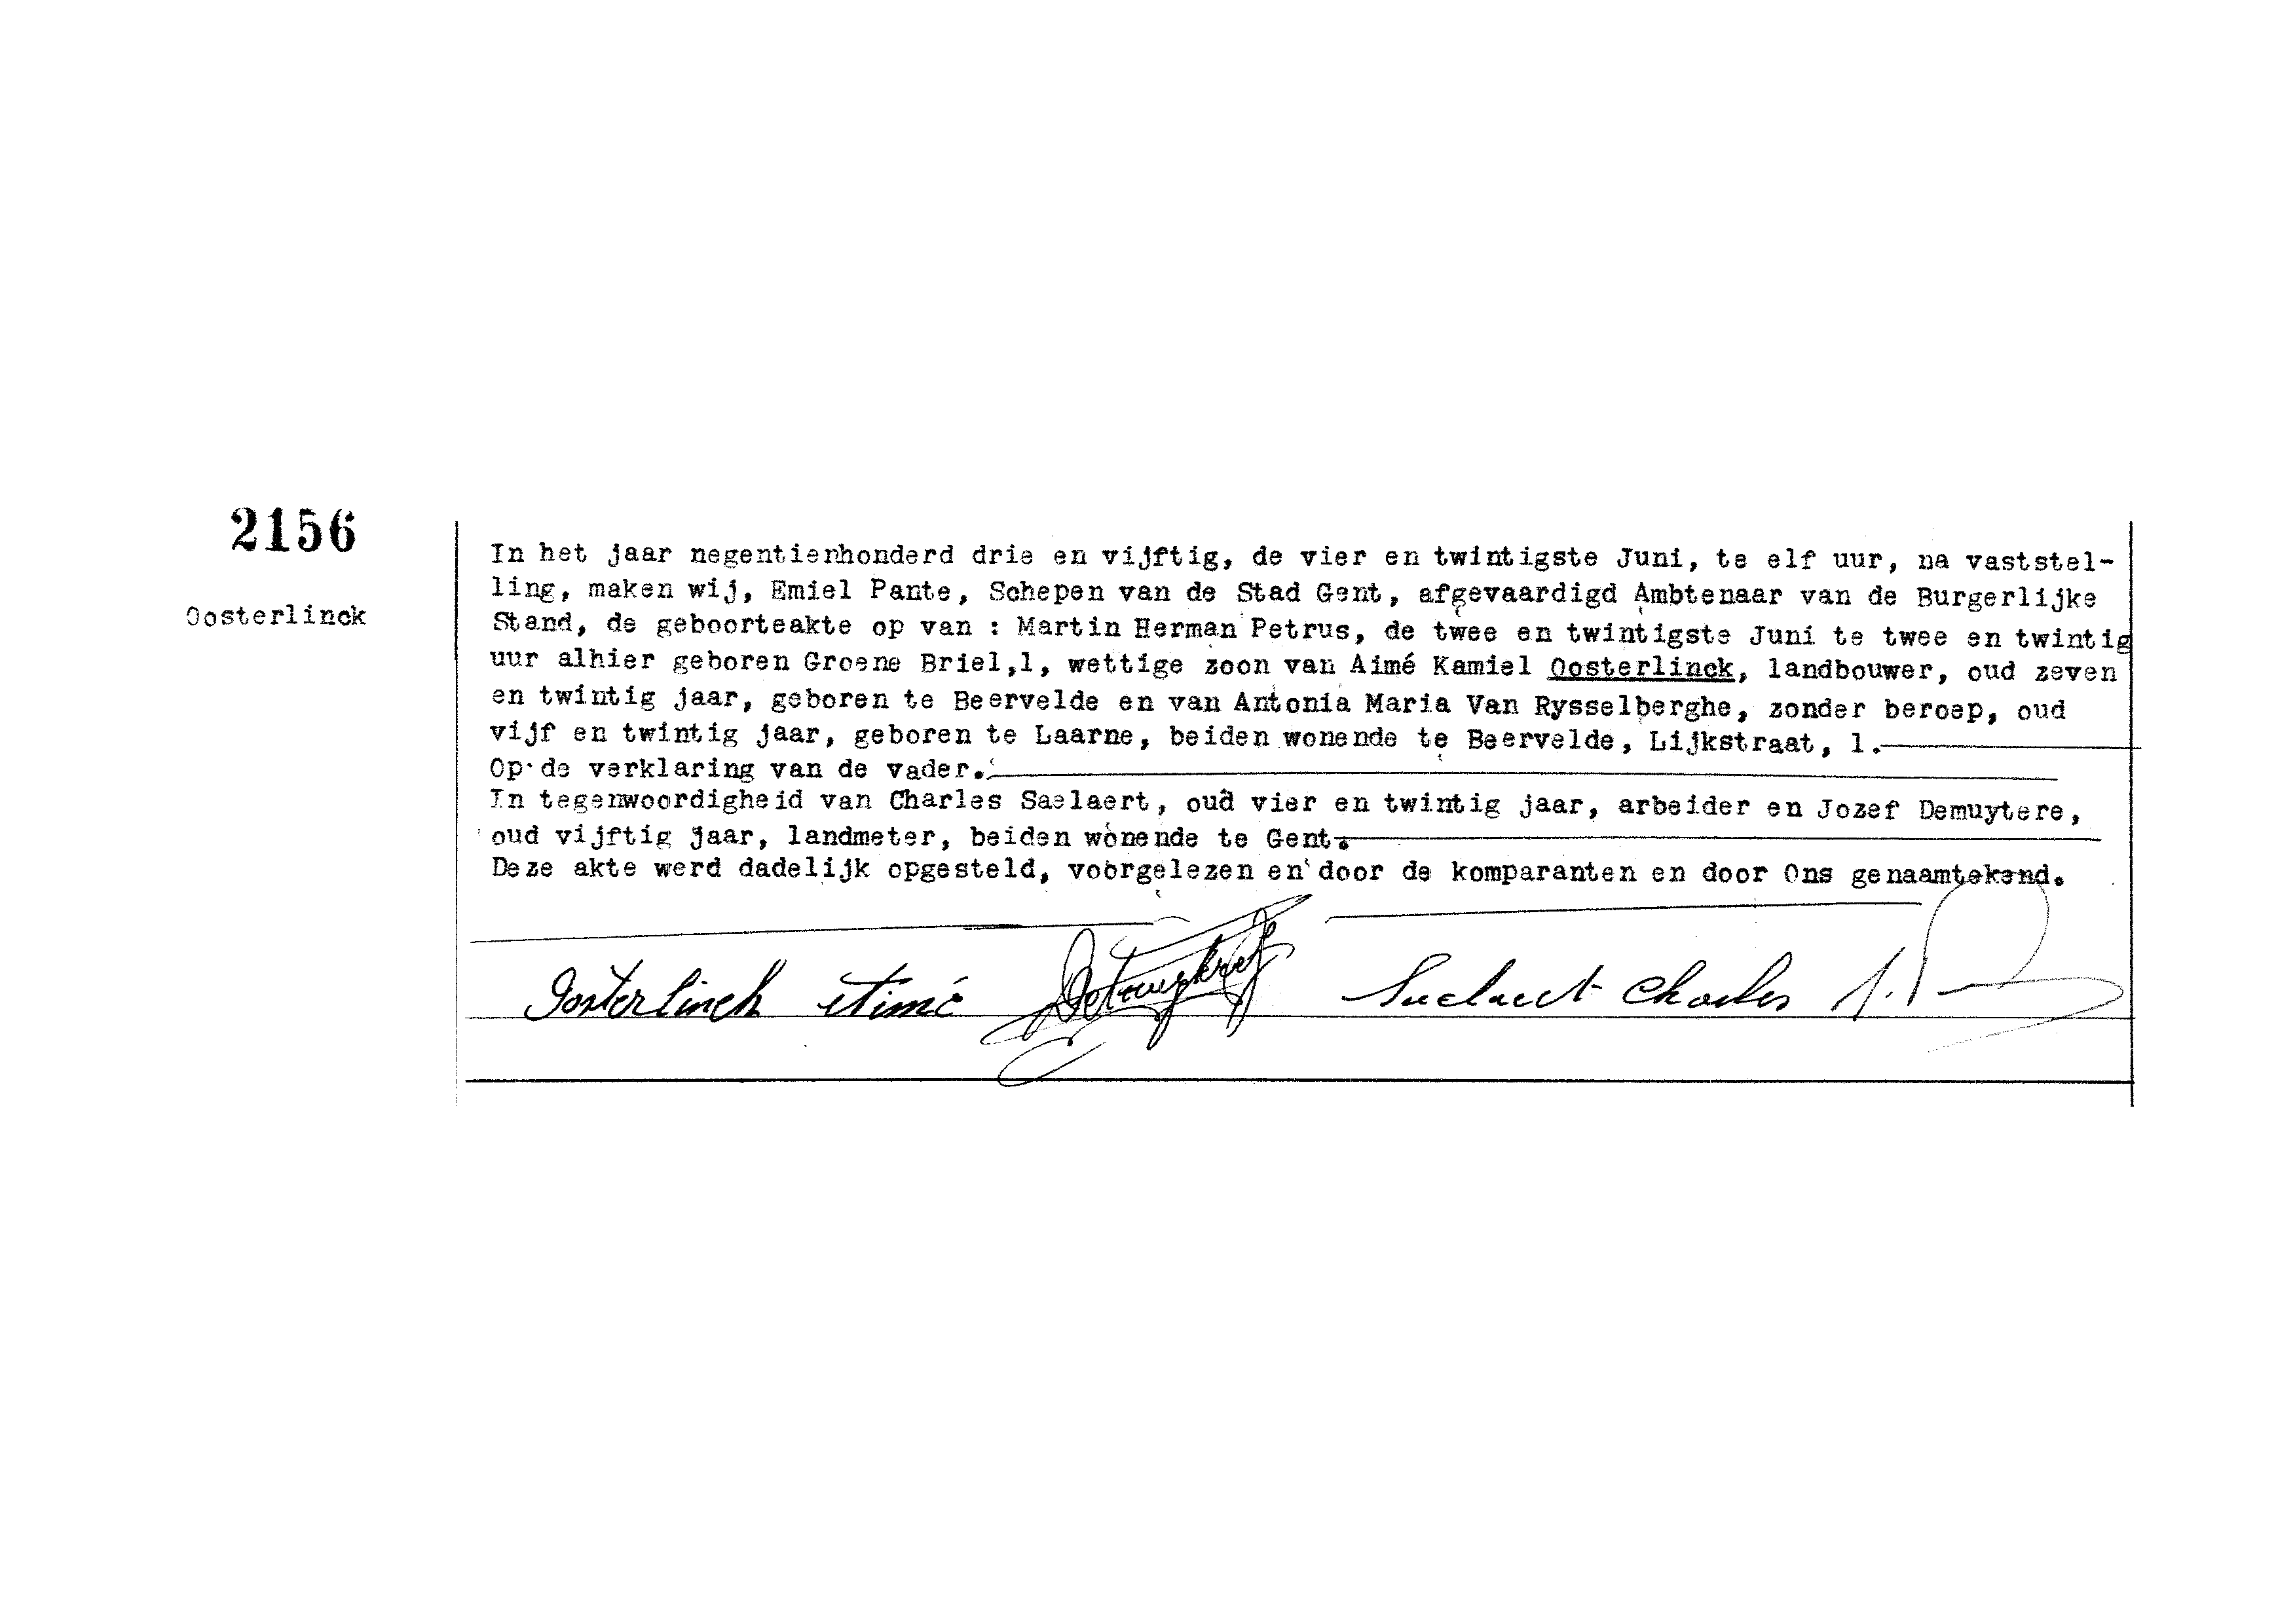 2156
Oosterlinck
In het jaar negentienhonderd drie en vijftig, de vier en twintigste Juni, te elf uur, na vaststel-
ling, maken wij, Emiel Pante, Schepen van de Stad Gent, afgevaardigd Ambtenaar van de Burgerlijke
Stand, de geboorteakte op van : Martin Herman Petrus, de twee en twintigste Juni te twee en twintig
uur alhier geboren Groene Briel,1, wettige zoon van Aimé Kamiel Oosterlinck, landbouwer, oud zeven
en twintig jaar, geboren te Beervelde en van Antonia Maria Van Rysselberghe, zonder beroep, oud
vijf en twintig jaar, geboren te Laarne, beiden wonende te Beervelde, Lijkstraat, 1.
Op de verklaring van de vader.
In tegenwoordigheid van Charles Saelaert, oud vier en twintig jaar, arbeider en Jozef Demuytere,
oud vijftig jaar, landmeter, beiden wonende te Gent.
Deze akte werd dadelijk opgesteld, voorgelezen en door de komparanten en door Ons genaamtekend.
Oosterlinck Aimé Saelaert Charles